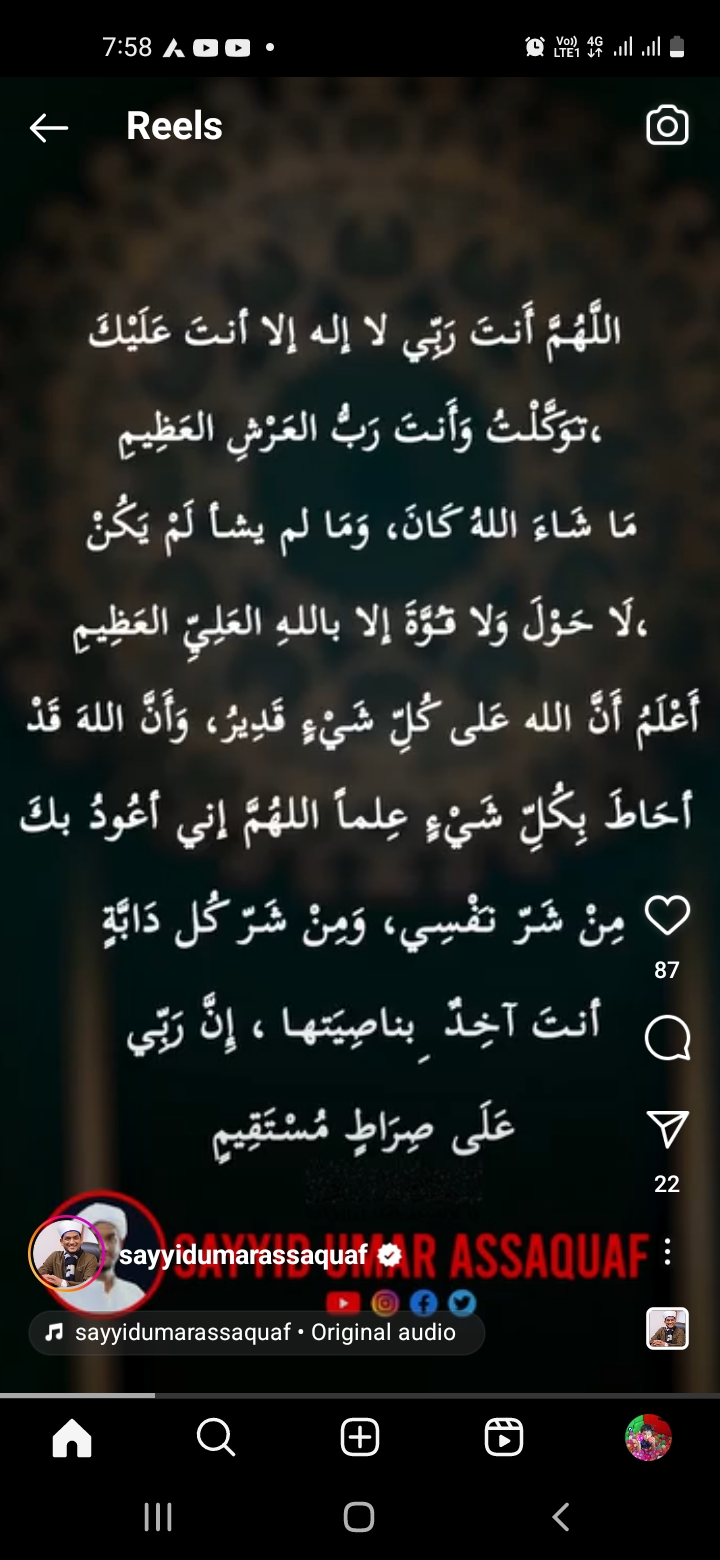 7:58
Vo)) LTE1 4G
Reels
اللَّهُمَّ أَنتَ رَبِّي لا إله إلا أنتَ عَلَيْكَ
،تَوَكَّلْتُ وَأَنتَ رَبُّ العَرْشِ العَظِيمِ
مَا شَاءَ اللهُ كَانَ، وَمَا لم يشأ لَمْ يَكُنْ
،لَا حَوْلَ وَلا قُوَّةَ إلا باللهِ العَلِيِّ العَظِيمِ
أَعْلَمُ أَنَّ الله عَلى كُلِّ شَيْءٍ قَدِيرُ، وَأَنَّ اللهَ قَدْ
أحَاطَ بِكُلِّ شَيْءٍ عِلماً اللهُمَّ إني أعُودُ بكَ
مِنْ شَرّ نَفْسِي، وَمِنْ شَرّ كُل دَابَّةٍ
أنتَ آخِدٌ بِناصِيَتها ، إِنَّ رَبِّي
عَلَى صِرَاطٍ مُسْتَقِيمٍ
87
22
SAYYID UMAR ASSAQUAF
sayyidumarassaquaf
sayyidumarassaquaf • Original audio